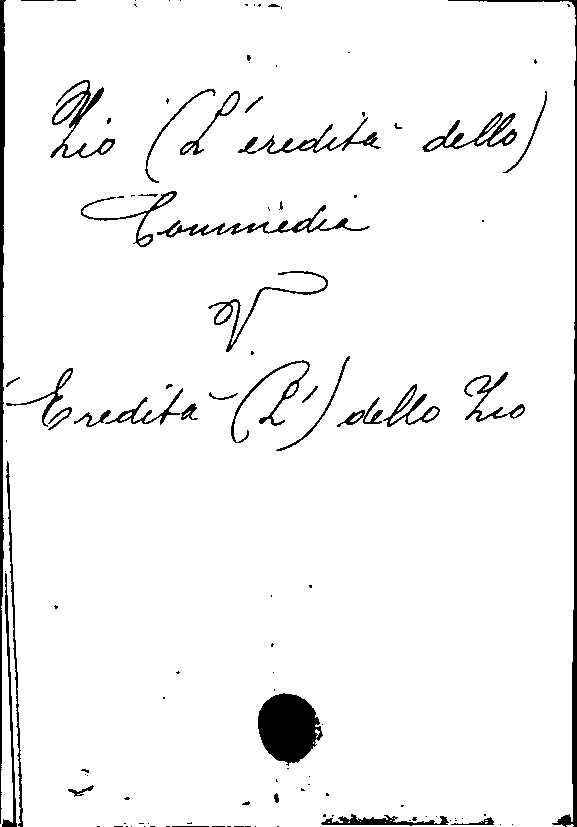 Zio (L'eredità dello)
Commedia
V
Eredità (L') dello Zio